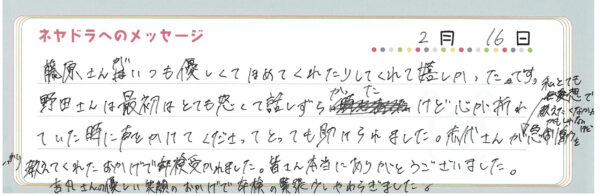 ネヤドラへのメッセージ
2月 16日
藤原さんはいつも優しくてほめてくれたりしてくれて嬉しかった。です。
野田さんは最初はとても恐くて話しずらかった けど心が折れ
ていた時に声をかけてくださってとっても助けられました。
教えてくれたおかげで卒検受かれました。皆さん本当にありがとうございました。
さんの優しい笑顔のおかげで卒検の緊張がやわらぎました。
私とても